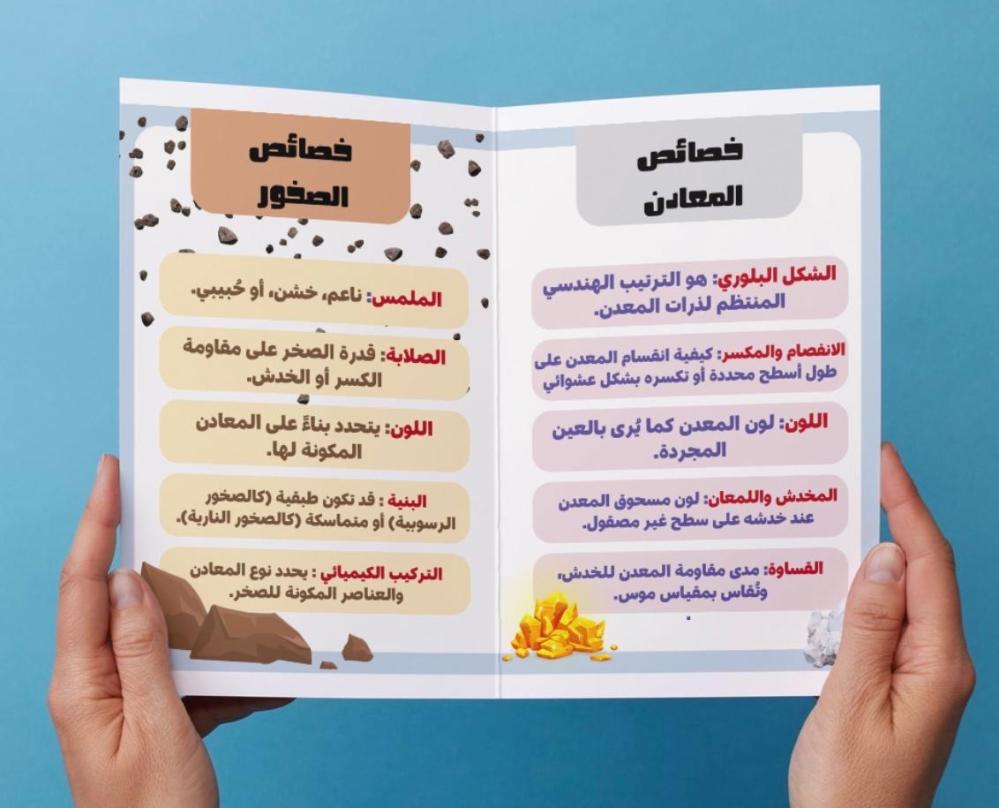 خصائص
المعادن
الشكل البلوري: هو الترتيب الهندسي
المنتظم لذرات المعدن.
الانفصام والمكسر: كيفية انقسام المعدن على
طول أسطح محددة أو تكسره بشكل عشوائي
اللون: لون المعدن كما يُرى بالعين
المجردة.
المخدش واللمعان: لون مسحوق المعدن
عند خدشه على سطح غير مصقول.
القساوة: مدى مقاومة المعدن للخدش،
وتُقاس بمقياس موس.
خصائص
الصخور
الملمس: ناعم، خشن، أو حُبيبي.
الصلابة: قدرة الصخر على مقاومة
الكسر أو الخدش.
اللون: يتحدد بناءً على المعادن
المكونة لها.
البنية : قد تكون طبقية (كالصخور
الرسوبية) أو متماسكة (كالصخور النارية).
التركيب الكيميائي : يحدد نوع المعادن
والعناصر المكونة للصخر.